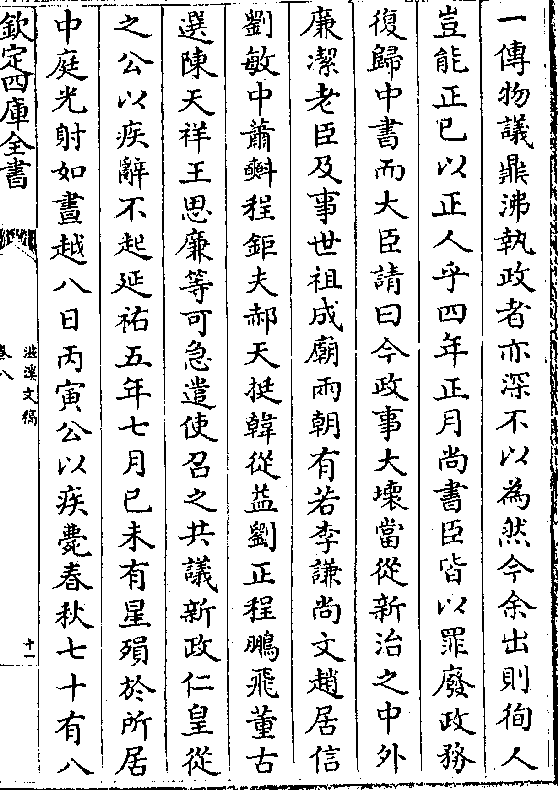 一傳物議鼎沸執政者亦深不以為然今余出則徇人
豈能正己以正人乎四年正月尚書臣皆以罪廢政務
復歸中書而大臣請曰今政事大壞當從新治之中外
廉潔老臣及事世祖成廟兩朝有若李謙尚文趙居信
劉敏中蕭㪺程鉅夫郝天挺韓從益劉正程鵬飛董士
選陳天祥王思廉等可急遣使召之共議新政仁皇從
之公以疾辭不起延祐五年七月己未有星殞於所居
中庭光射如晝越八日丙寅公以疾薨春秋七十有八
欽定四庫全書
滋溪文稿
卷八
十一